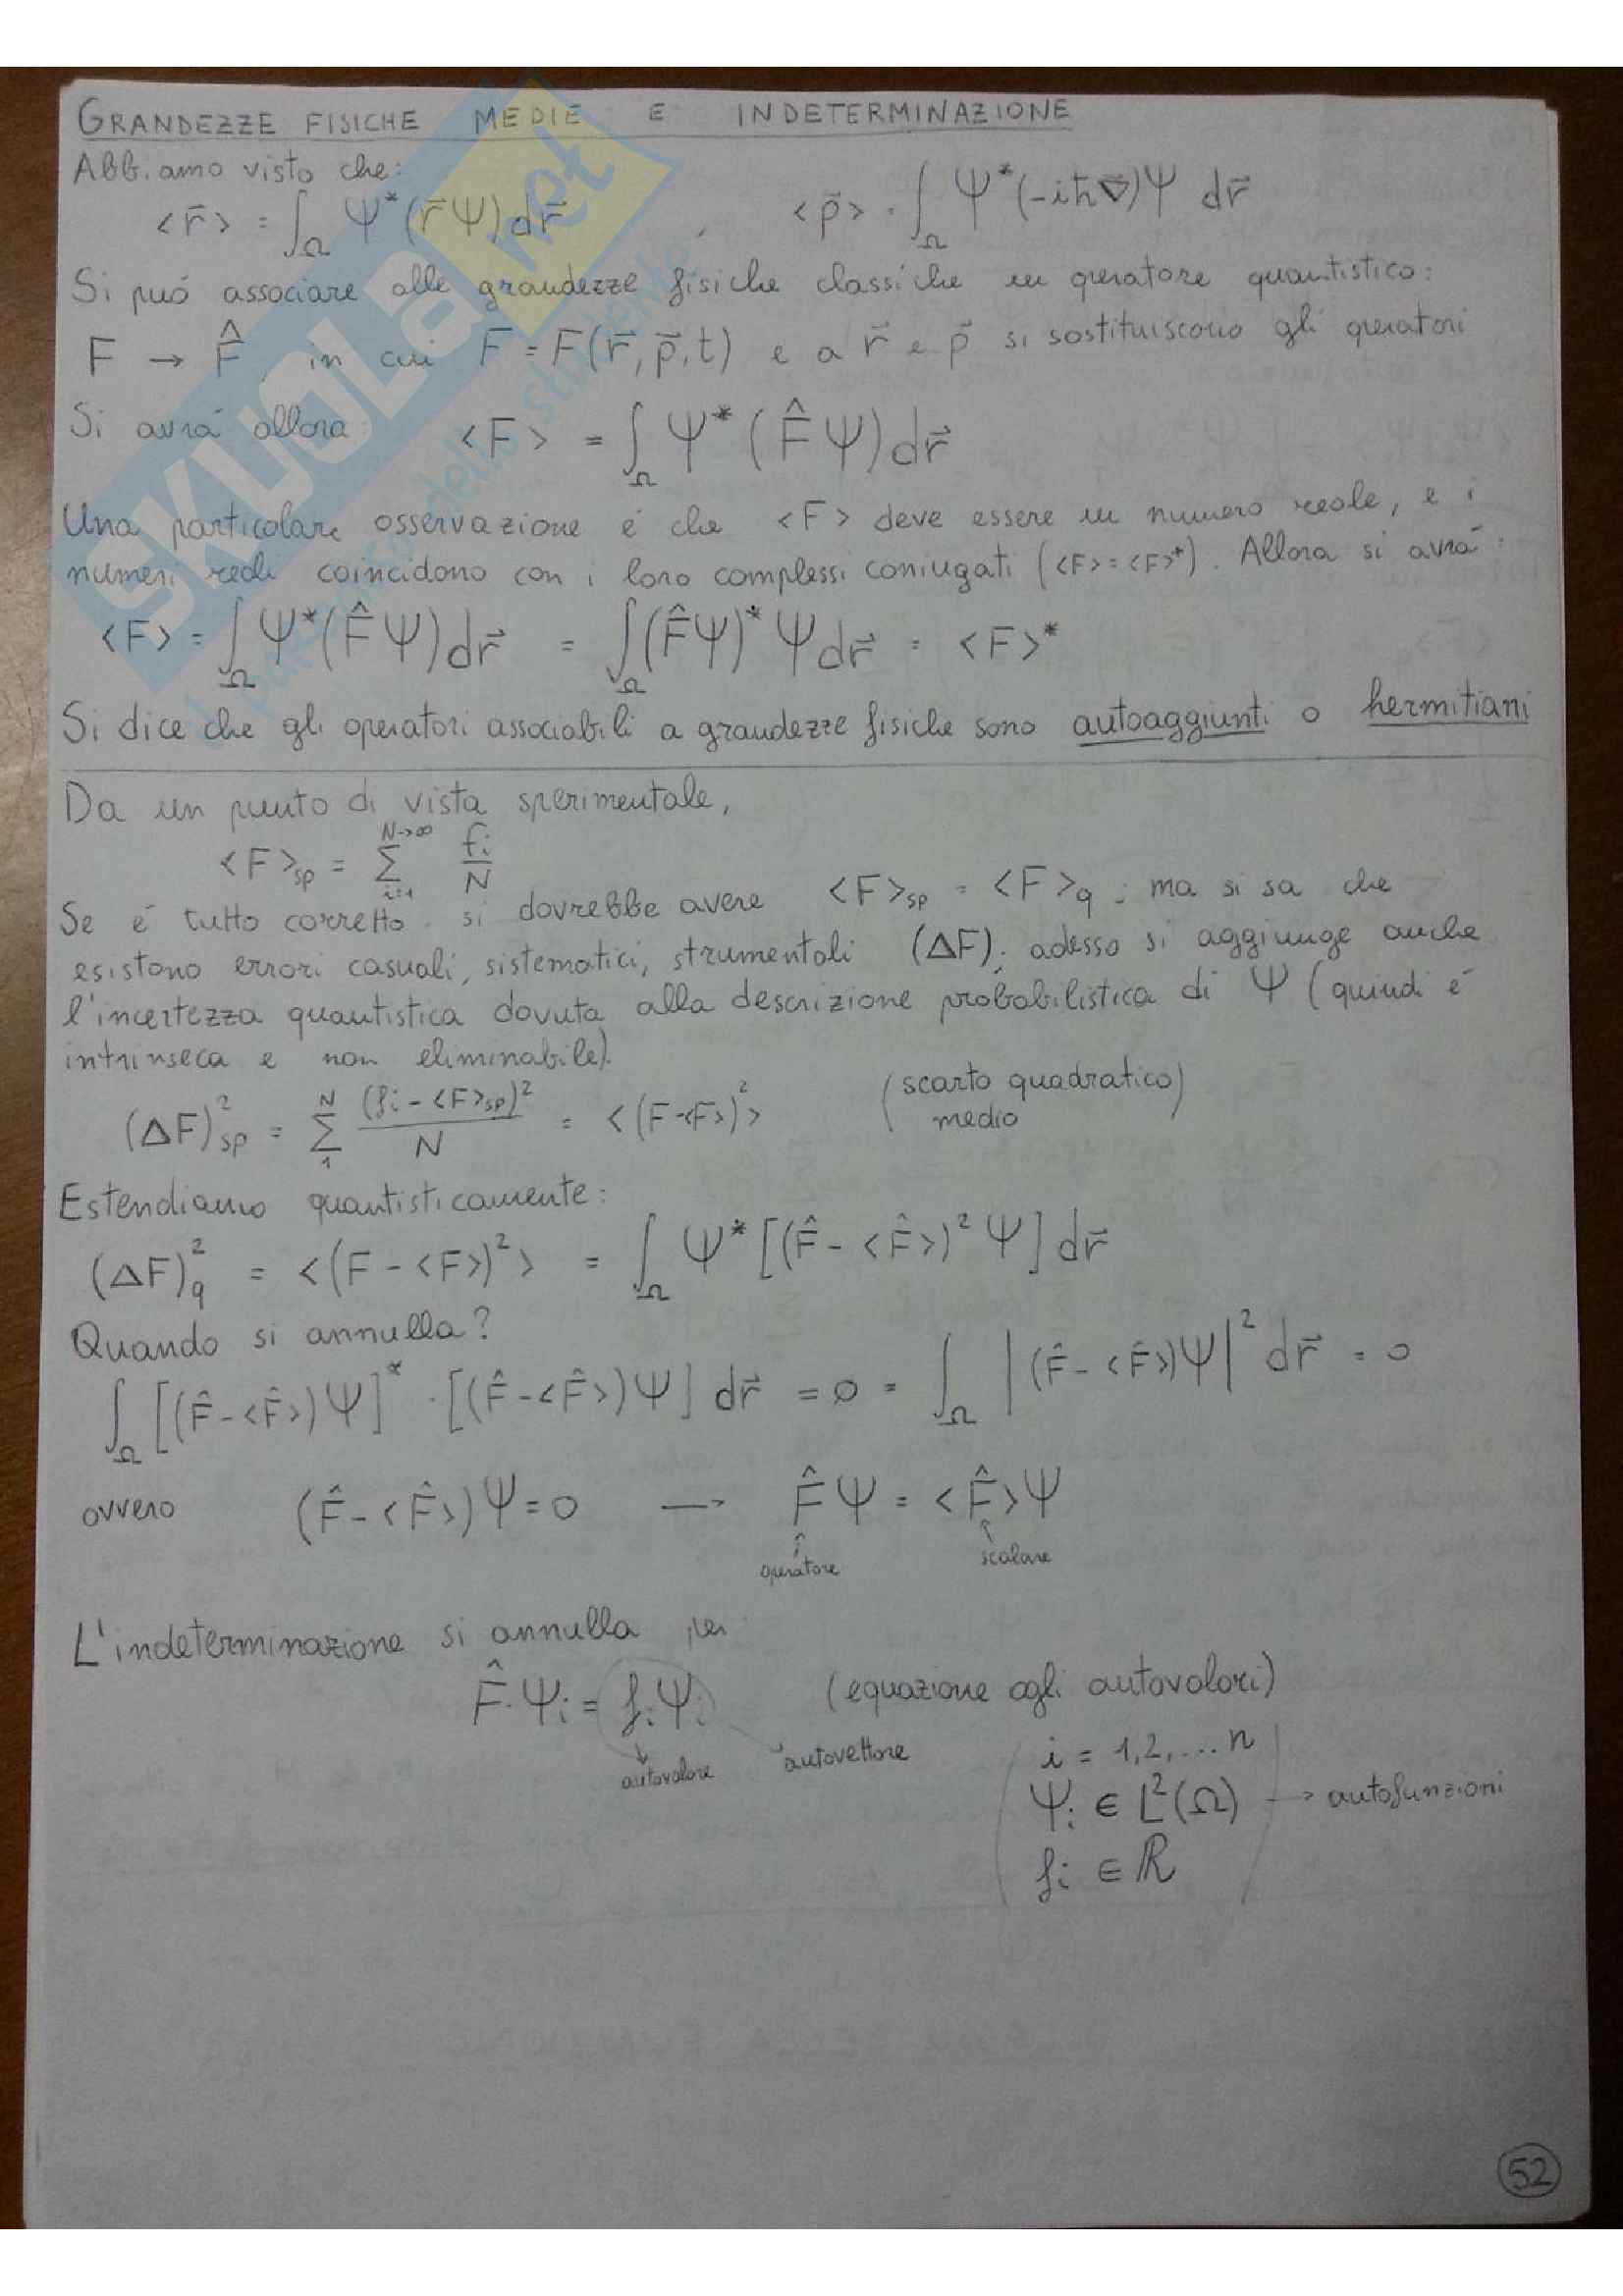 GRANDEZZE FISICHE MEDIE E INDETERMINAZIONE
Abbiamo visto che:
<r⃗> = ∫_Ω Ψ*(r⃗Ψ)dr⃗ , <p⃗> = ∫_Ω Ψ*(-iħ∇⃗)Ψ dr⃗
Si può associare alle grandezze fisiche classiche un operatore quantistico:
F → F̂, in cui F = F(r⃗, p⃗, t) e a r⃗ e p⃗ si sostituiscono gli operatori
Si avrà allora <F> = ∫_Ω Ψ*(F̂Ψ)dr⃗
Una particolare osservazione é che <F> deve essere un numero reale, e i
numeri reali coincidono con i loro complessi coniugati (<F>=<F>*). Allora si avrà:
<F> = ∫_Ω Ψ*(F̂Ψ)dr⃗ = ∫_Ω (F̂Ψ)*Ψdr⃗ = <F>*
Si dice che gli operatori associabili a grandezze fisiche sono autoaggiunti o hermitiani
Da un punto di vista sperimentale,
<F>_sp = Σ_{i=1}^{N→∞} f_i/N
Se é tutto corretto si dovrebbe avere <F>_sp = <F>_q ; ma si sa che
esistono errori casuali, sistematici, strumentali (ΔF); adesso si aggiunge anche
l'incertezza quantistica dovuta alla descrizione probabilistica di Ψ (quindi é
intrinseca e non eliminabile).
(ΔF)²_sp = Σ_1^N (f_i - <F>_sp)²/N = <(F-<F>)²> (scarto quadratico
medio)
Estendiamo quantisticamente:
(ΔF)²_q = <(F - <F>)²> = ∫_Ω Ψ*[(F̂ - <F̂>)²Ψ]dr⃗
Quando si annulla?
∫_Ω [(F̂-<F̂>)Ψ]* · [(F̂-<F̂>)Ψ] dr⃗ = 0 = ∫_Ω |(F̂-<F̂>)Ψ|² dr⃗ = 0
ovvero (F̂ - <F̂>)Ψ = 0 → F̂Ψ = <F̂>Ψ
operatore scalare
L'indeterminazione si annulla per
F̂·Ψ_i = f_iΨ_i (equazione agli autovalori)
autovalore autovettore i = 1,2,...n
Ψ_i ∈ L²(Ω) → autofunzioni
f_i ∈ ℝ
52
SKUOLA.net